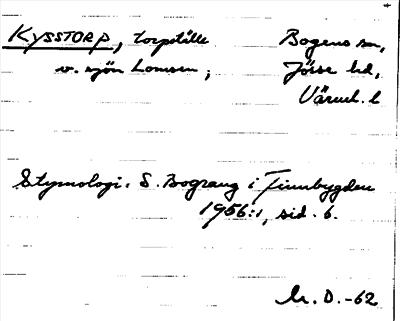 KYSSTORP, torpställe Bogens sn,
v. sjön Lomsen; Jösse hd,
Värml. l
Etymologi: S. Bograng i Finnbygden
1956:1, sid. 6.
Lr. D. -62